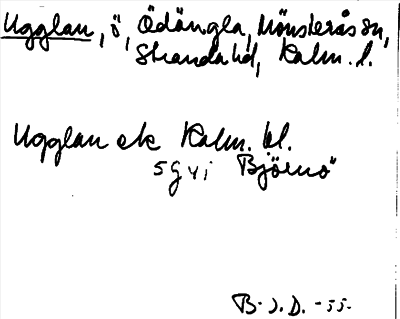 Ugglan, ö, Ödängla, Mönsterås sn,
Stranda hd, Kalm. l.
Ugglan ek Kalm. bl.
5 g vi Björnö
B. J. D. -55.